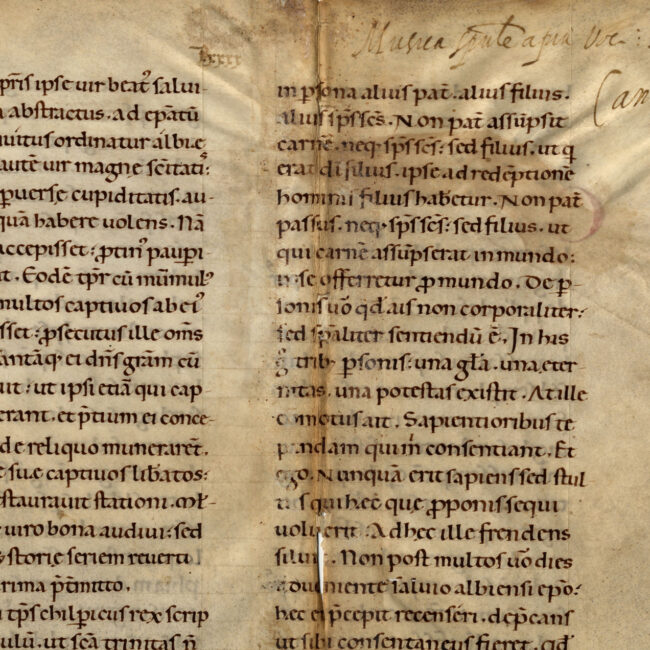 lxxxx
Musica
p̄ris ipse uir beat᷒ salui-
abstractus. ad ep̄atū
uitus ordinatur albiȩ
autē uir magnȩ sc̄itati:
ꝑuerse cupiditatis. au-
quā habere uolens. Nā
accepisset: ꝓtin᷒ paupi-
t. Eodē tp̄r cū mūmul᷒
multos captiuos ab ei᷒
sset: ꝓsecutus ille om̄s
antāq; ei dn̄s gr̄am cū
uit: ut ipsi etiā qui cap
erant. et p̄tium ei conce-
de reliquo muneraret̄.
suȩ captiuos lib̄atos:
staurauit stationi. Ml̄-
uiro bona audiui: sed
storiȩ seriem reuerti
rima p̄t̄mitto.
tp̄s chilpicus rex scrip
ulū. ut sc̄a trinitas n̄
in ꝑsona alius pat̄. alius filius.
alius sp̄s sc̄s. Non pat̄ assūpsit
carnē. neq; sp̄s sc̄s: sed filius. ut q
erat di filius. ipse ad redēptionē
hominis filius habetur. Non pat̄
passus. neq; sp̄s sc̄s: sed filius. ut
qui carnē assūpserat in mundo:
ipse offerretur ꝓ mundo. De ꝑ-
sonis uo̅ qd̄ ais non corporaliter:
sed sp̄aliter sentiendū ē. In his
g̊ trib; ꝑsonis: una gl̄a. una eter
nitas. una potestas existit. At ille
commotus ait. Sapientioribus te
pandam qui m̄ consentiant. Et
ego. Nunquā erit sapiens sed stul
tus qui hec que ꝓponis sequi
uoluerit. Ad hec ille frendens
siluit. Non post multos uo̅ dies
adueniente saluio albiensi ep̄o:
hec ei p̄cepit recenseri. dep̄cans
ut sibi consentaneus fieret. qd̄